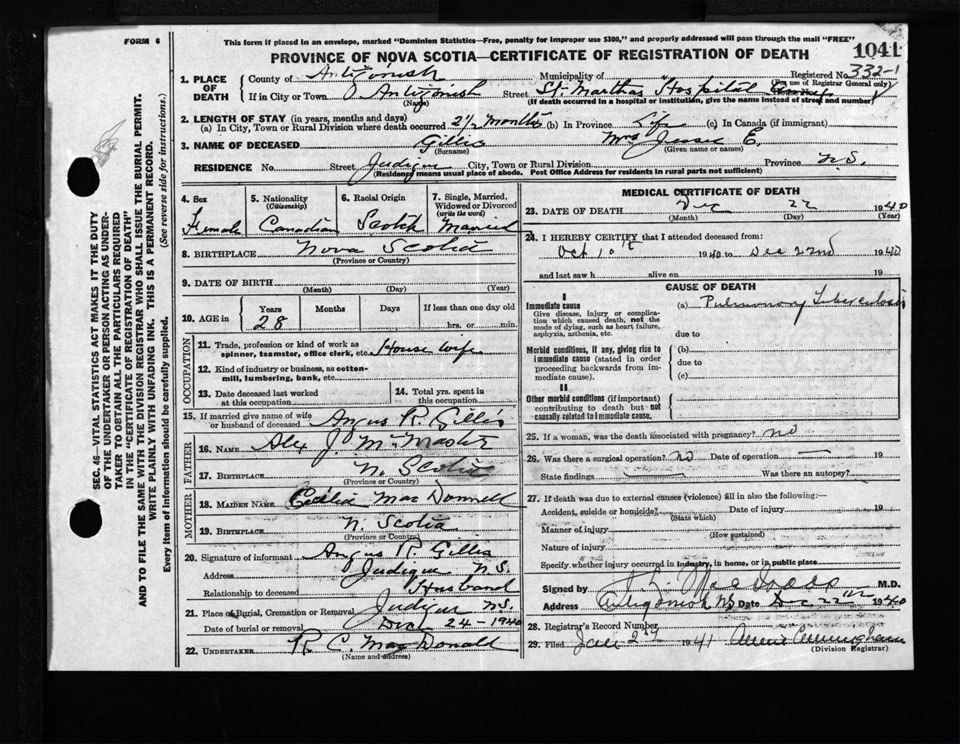 FORM 6
This form if placed in an envelope, marked "Dominion Statistics—Free, penalty for improper use $300," and properly addressed will pass through the mail "FREE"
PROVINCE OF NOVA SCOTIA—CERTIFICATE OF REGISTRATION OF DEATH
1041
1. PLACE OF DEATH
County of Antigonish Municipality of Registered No. 332-1
(For use of Registrar General only)
If in City or Town Antigonish Street St. Marthas Hospital
(Name) (If death occurred in a hospital or institution, give the name instead of street and number)
2. LENGTH OF STAY (in years, months and days)
(a) In City, Town or Rural Division where death occurred 2 1/2 months (b) In Province Life (c) In Canada (if immigrant)
3. NAME OF DECEASED Gillis Mrs Jessie E.
(Surname) (Given name or names)
RESIDENCE No. Street Judique City, Town or Rural Division Province N.S.
(Residency means usual place of abode. Post Office Address for residents in rural parts not sufficient)
4. Sex Female
5. Nationality (Citizenship) Canadian
6. Racial Origin Scotch
7. Single, Married, Widowed or Divorced (write the word) Married
8. BIRTHPLACE Nova Scotia
(Province or Country)
9. DATE OF BIRTH
(Month) (Day) (Year)
10. AGE in Years Months Days If less than one day old
28 hrs. or min.
OCCUPATION
11. Trade, profession or kind of work as spinner, teamster, office clerk, etc. House wife
12. Kind of industry or business, as cotton-mill, lumbering, bank, etc.
13. Date deceased last worked at this occupation
14. Total yrs. spent in this occupation
15. If married give name of wife or husband of deceased Angus R. Gillis
FATHER
16. NAME Alex J. McMaster
17. BIRTHPLACE N. Scotia
(Province or Country)
MOTHER
18. MAIDEN NAME Cecilia MacDonnell
19. BIRTHPLACE N. Scotia
(Province or Country)
20. Signature of informant Angus R. Gillis
Address Judique N.S.
Relationship to deceased Husband
21. Place of Burial, Cremation or Removal Judique N.S.
Date of burial or removal Dec 24-1940
22. UNDERTAKER R. C. MacDonald
(Name and address)
MEDICAL CERTIFICATE OF DEATH
23. DATE OF DEATH Dec 22 1940
(Month) (Day) (Year)
24. I HEREBY CERTIFY that I attended deceased from:
Oct 10th 1940 to Dec 22nd 1940
and last saw h alive on 19
CAUSE OF DEATH
I
Immediate cause (a) Pulmonary Tuberculosis
Give disease, injury or complication which caused death, not the mode of dying, such as heart failure, asphyxia, asthenia, etc.
due to
Morbid conditions, if any, giving rise to immediate cause (stated in order proceeding backwards from immediate cause).
(b)
due to
(c)
II
Other morbid conditions (if important) contributing to death but not causally related to immediate cause.
25. If a woman, was the death associated with pregnancy? no
26. Was there a surgical operation? no Date of operation — 19
State findings Was there an autopsy?
27. If death was due to external causes (violence) fill in also the following:—
Accident, suicide or homicide? Date of injury 19
(State which)
Manner of injury
(How sustained)
Nature of injury
Specify whether injury occurred in industry, in home, or in public place
Signed by M.D.
Address Antigonish NS Date Dec 22nd 1940
28. Registrar's Record Number
29. Filed Jan 2nd 1941
(Division Registrar)
SEC. 46—VITAL STATISTICS ACT MAKES IT THE DUTY
OF THE UNDERTAKER OR PERSON ACTING AS UNDER-
TAKER TO OBTAIN ALL THE PARTICULARS REQUIRED
IN THE "CERTIFICATE OF REGISTRATION OF DEATH"
AND TO FILE THE SAME WITH THE DIVISION REGISTRAR WHO SHALL ISSUE THE BURIAL PERMIT.
WRITE PLAINLY WITH UNFADING INK. THIS IS A PERMANENT RECORD.
Every item of information should be carefully supplied. (See reverse side for instructions.)